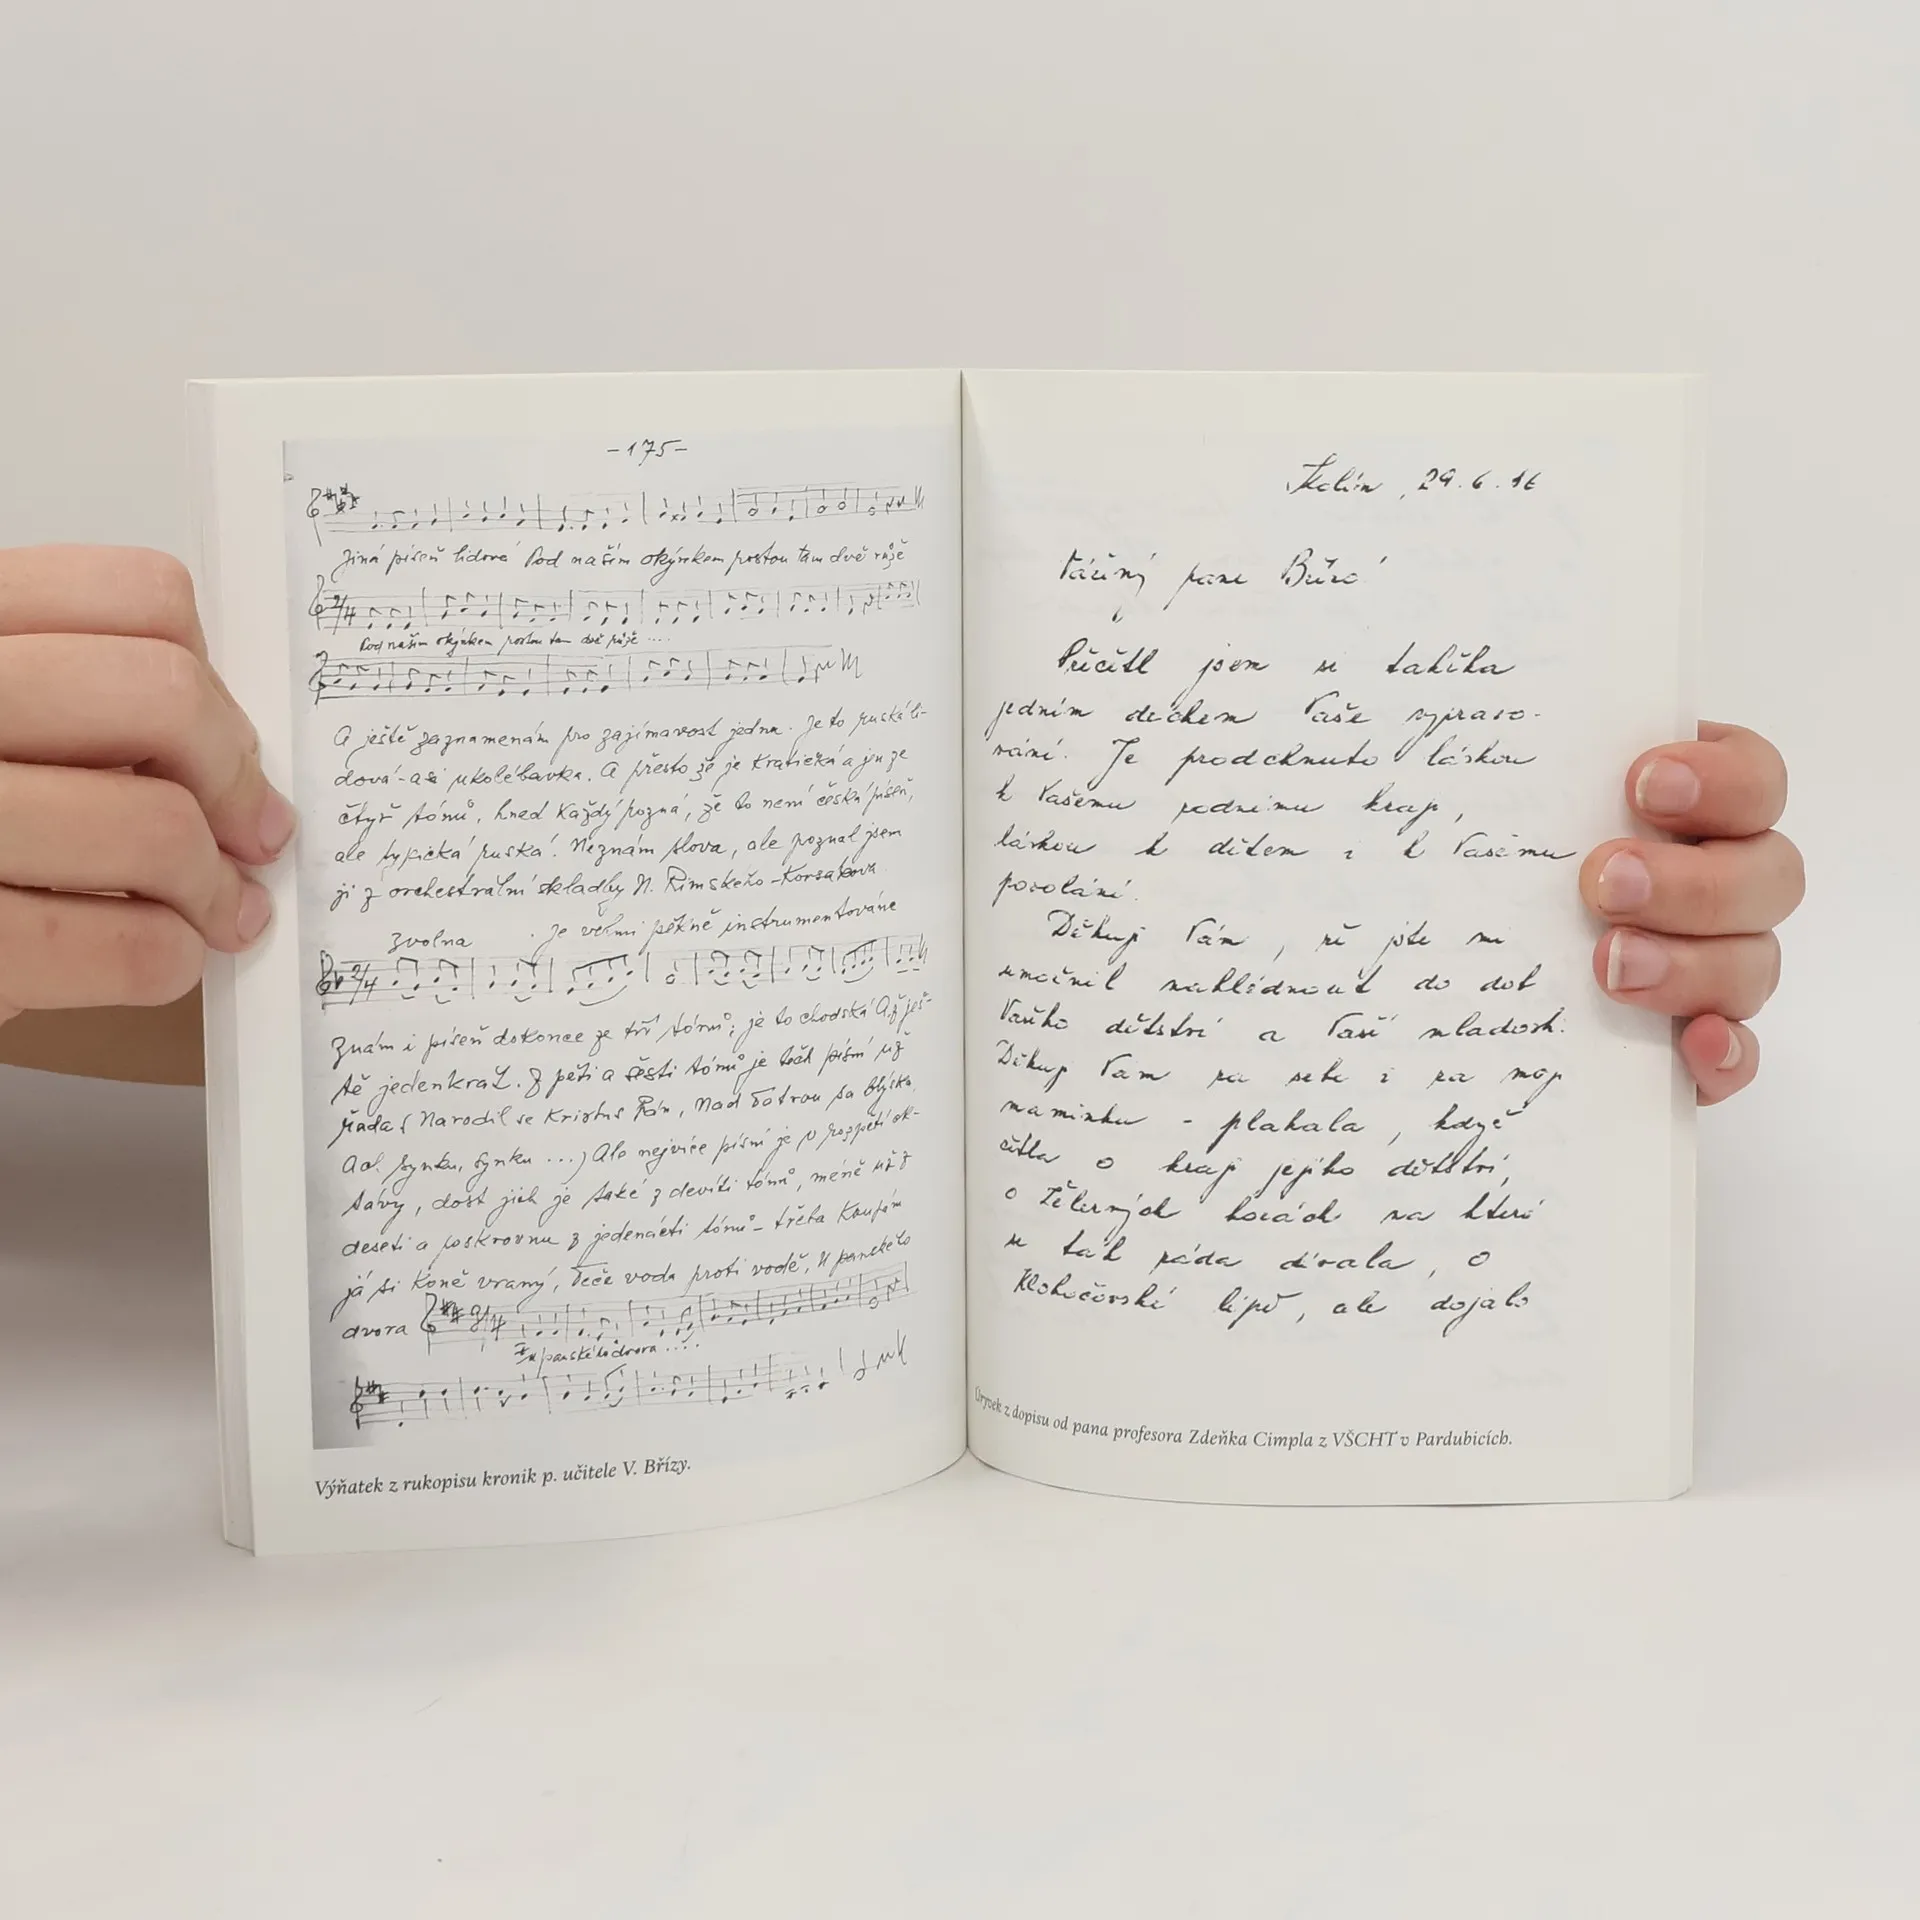 -175-
Jiná píseň lidová Pod naším okýnkem rostou tam dvě růže
2/4
Pod naším okýnkem rostou tam dvě růže ....
A ještě zaznamenám pro zajímavost jednu. Je to ruská li-
dová - asi ukolébavka. A přesto že je kratičká a jen ze
čtyř tónů, hned každý pozná, že to není česká píseň,
ale typická ruská. Neznám slova, ale poznal jsem
ji z orchestrální skladby N. Rimského-Korsakova
zvolna . je velmi pěkně instrumentováne
2/4
Znám i píseň dokonce ze tří tónů; je to chodská Až ješ-
tě jedenkrát. Z pěti a šesti tónů je těch písní už
řada (Narodil se Kristus Pán, Nad Tatrou sa blýska,
Ach synku, synku ...) Ale nejvíce písní je v rozpětí ok-
távy, dost jich je také z devíti tónů, méně už z
deseti a poskrovnu z jedenácti tónů - třeba Koupím
já si koně vraný, Teče voda proti vodě, U panského
dvora
U panského dvora ....
Výňatek z rukopisu kronik p. učitele V. Břízy.
29.6.16
Vážený pane
Přečetl jsem si takřka
jedním dechem Vaše vypravo-
vání. Je prodchnuto láskou
k Vašemu rodnému kraji,
láskou k dětem i k Vašemu
povolání.
Děkuji Vám, že jste mi
umožnil nahlédnout do dob
Vašeho dětství a Vaší mladosti.
Děkuji Vám za sebe i za moji
maminku - plakala, když
četla o kraji jejího dětství,
o Železných horách na které
se tak ráda dívala, o
Klokočovské lípě, ale dojalo
Úryvek z dopisu od pana profesora Zdeňka Cimpla z VŠCHT v Pardubicích.